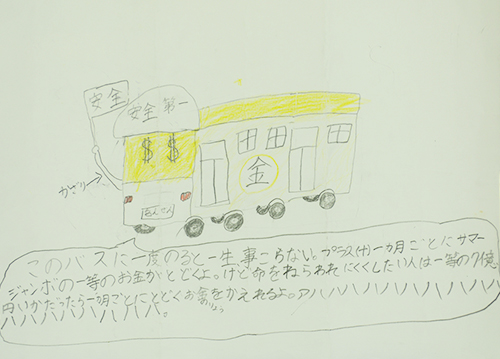 安全
安全第一
$ $
かざり→
金
このバスに一度のると一生事こらない。プラス(+)一カ月ごとにサマー
ジャンボの一等のお金がとどくよ。けど命をねらわれにくくしたい人は一等の7億
円いかだったら一カ月ごとにとどくお金をかえれるよ。アハハハハハハハハハハ
りょう
ハハハハハハハハハハ。